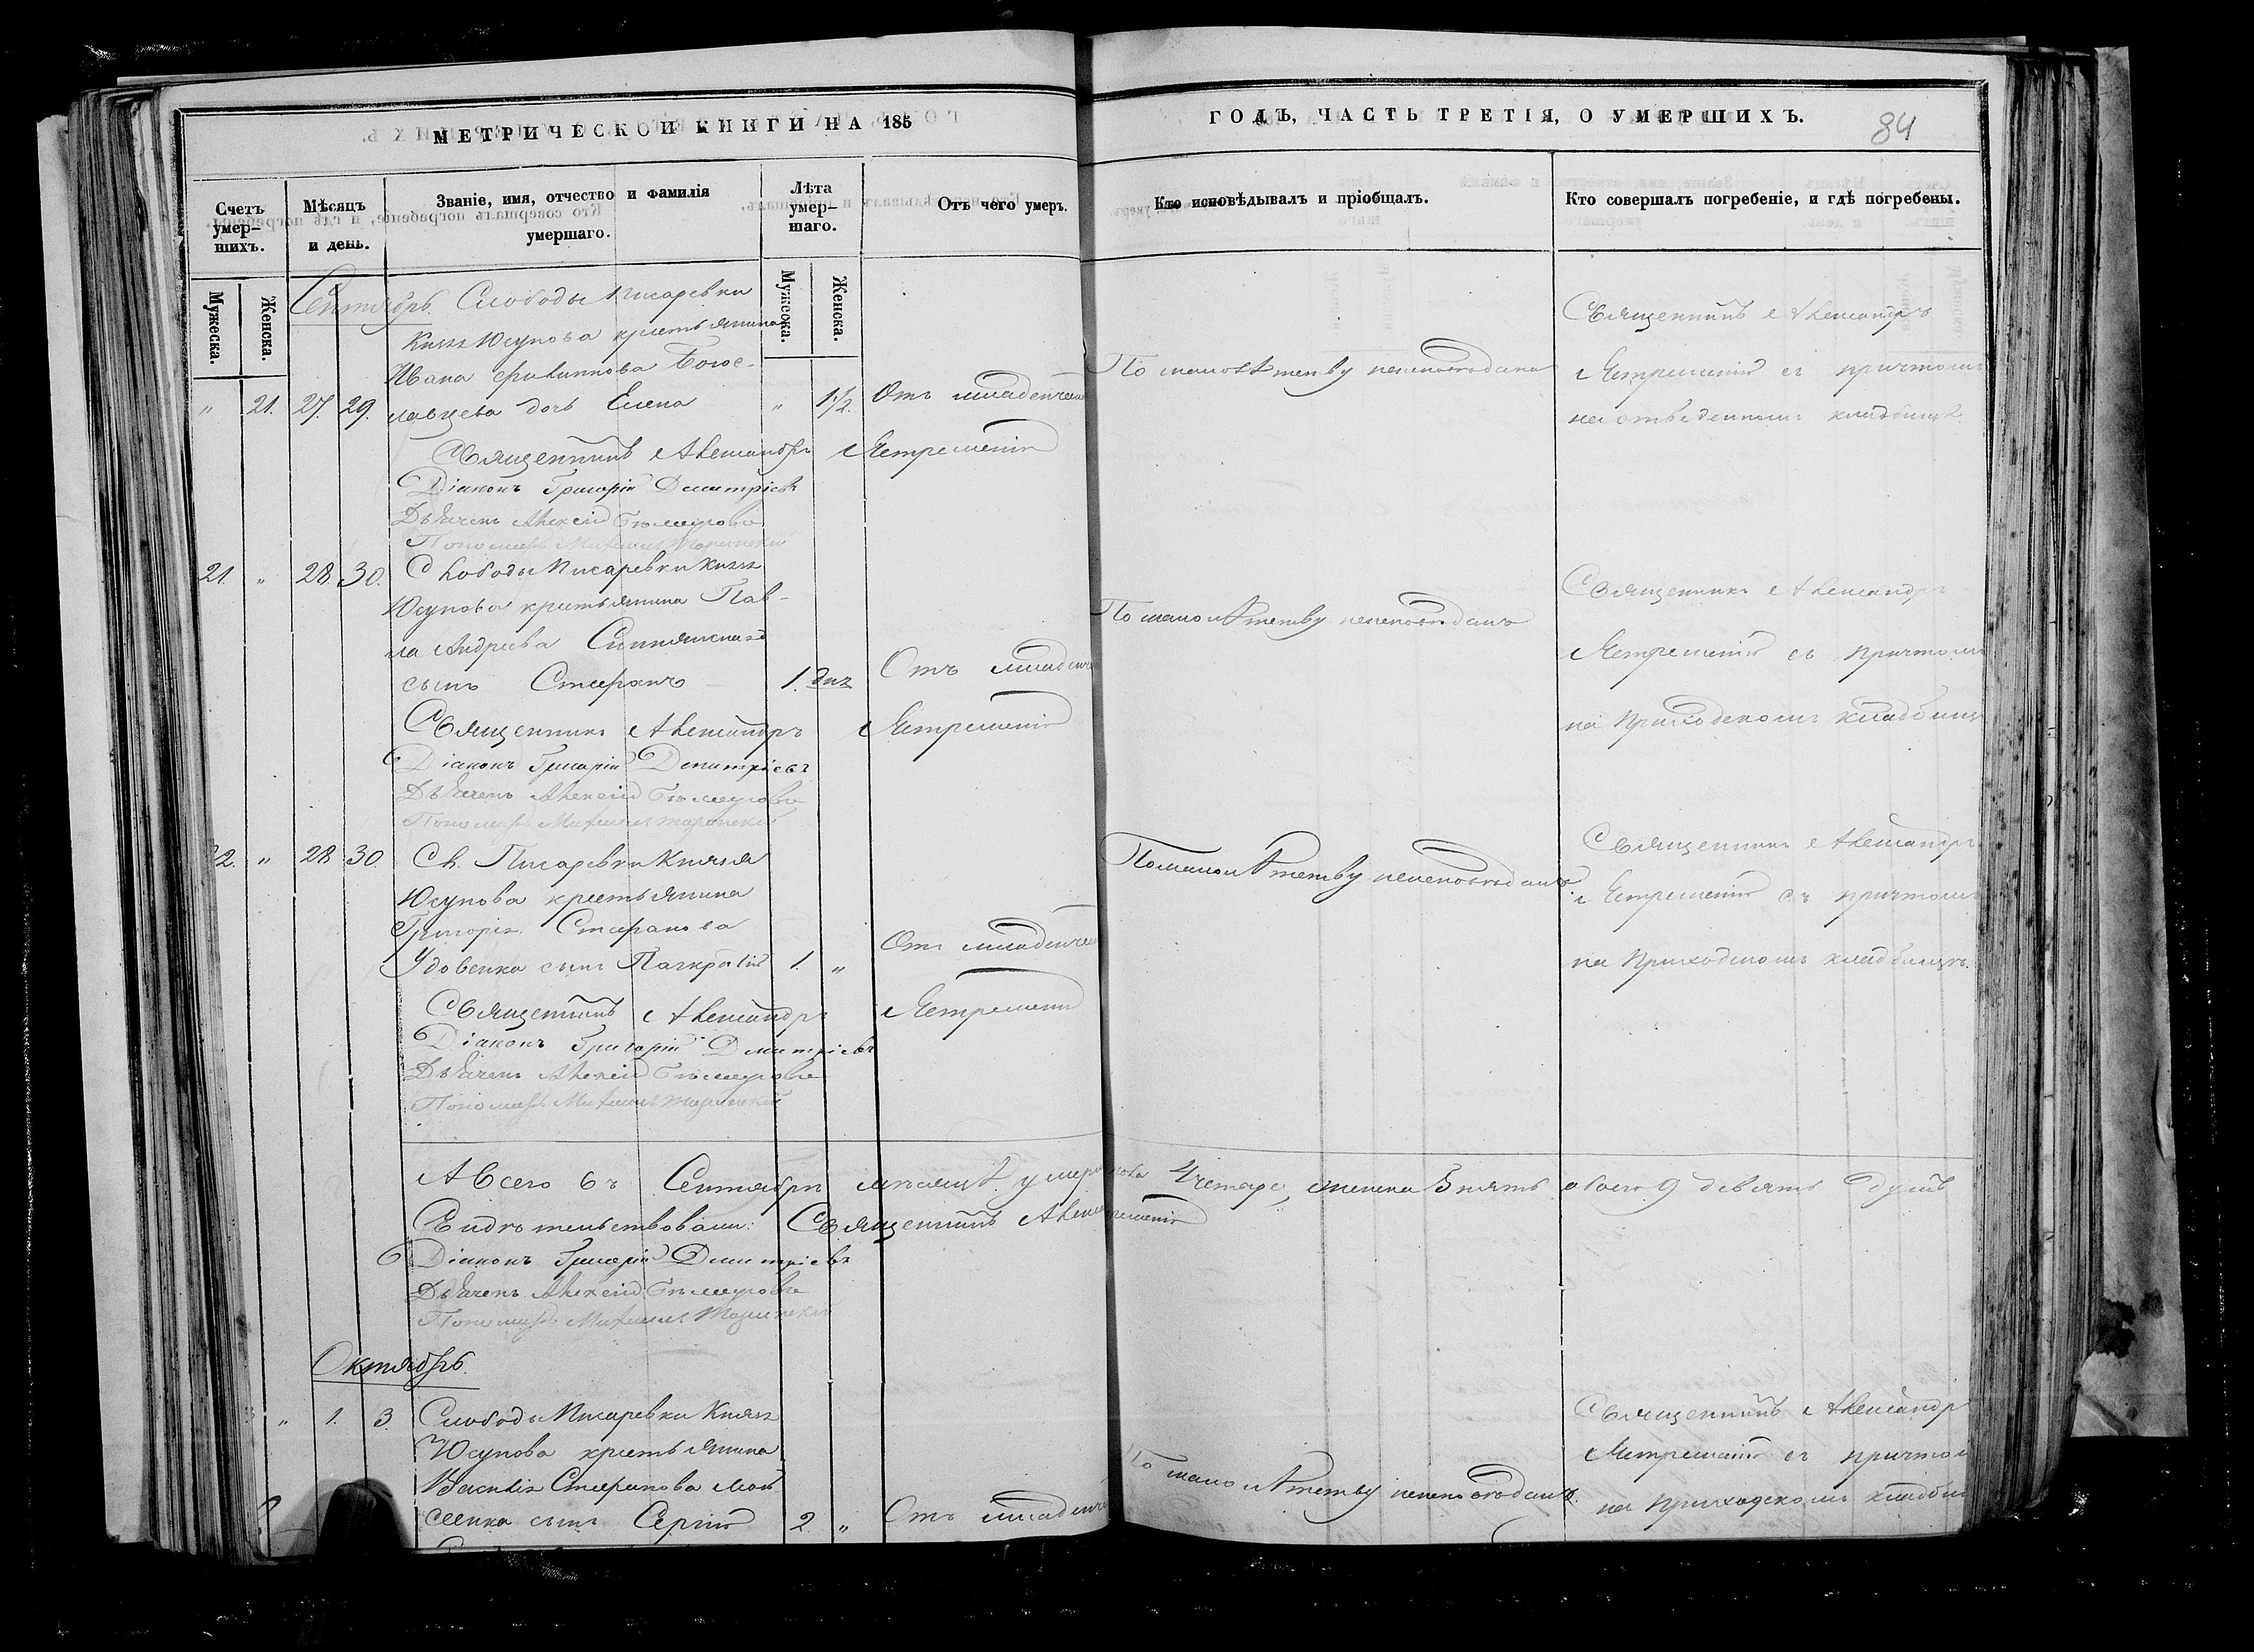 МЕТРИЧЕСКОЙ КНИГИ НА 185
ГОДЪ, ЧАСТЬ ТРЕТІЯ, О УМЕРШИХЪ.
84
Счетъ умер-
шихъ.
Мѣсяцъ
и день.
Званіе, имя, отчество и фамилія
умершаго.
Лѣта
умер-
шаго.
Отъ чего умеръ.
Кто исповѣдывалъ и пріобщалъ.
Кто совершалъ погребеніе, и гдѣ погребены.
Мужеска.
Женска.
Мужеска.
Женска.
Сентябрь. Слободы Писаревки
Князя Юсупова крестьянина
Ивана Филиппова Богос-
" 21. 27. 29. лавцева дочь Елена " 1½. Отъ младенчес
По малолѣтству неисповѣдана
Священникъ Александръ
Ястремскій съ причтомъ
на отведенномъ кладбищѣ
Священникъ Александръ Ястремскій
Діаконъ Григорій Дмитріевъ
Дьячекъ Алексій
Пономарь Михаилъ
21. " 28 30. Слободы Писаревки Князя
Юсупова крестьянина Пав-
ла Андреева
сынъ Стефанъ 1. дня Отъ младенч
По малолѣтству неисповѣданъ
Священникъ Александръ
Ястремскій съ причтомъ
на приходскомъ кладбищ
Священникъ Александръ Ястремскій
Діаконъ Григорій Дмитріевъ
Дьячекъ Алексій
Пономарь Михаилъ
22. " 28 30. Сл. Писаревки Князя
Юсупова крестьянина
Григорія Стефанова
Удовенка сынъ Панкратій 1. " Отъ младенчес
По малолѣтству неисповѣданъ
Священникъ Александръ
Ястремскій съ причтомъ
на приходскомъ кладбищѣ.
Священникъ Александръ Ястремскій
Діаконъ Григорій Дмитріевъ
Дьячекъ Алексій
Пономарь Михаилъ
А Всего въ Сентябрѣ мѣсяцѣ умер 4 четыре, женска 5 пять обоего 9 девять душъ
Свидѣтельствовали: Священникъ Александръ Ястремскій
Діаконъ Григорій Дмитріевъ
Дьячекъ Алексій
Пономарь Михаилъ
Октябрь.
" 1. 3. Слободы Писаревки Князя
Юсупова крестьянина
Василія Стефанова Мой
сеенка сынъ Сергій 2. " Отъ младенчес
По малолѣтству неисповѣданъ.
Священникъ Александръ
Ястремскій съ причтом
на приходскомъ кладби